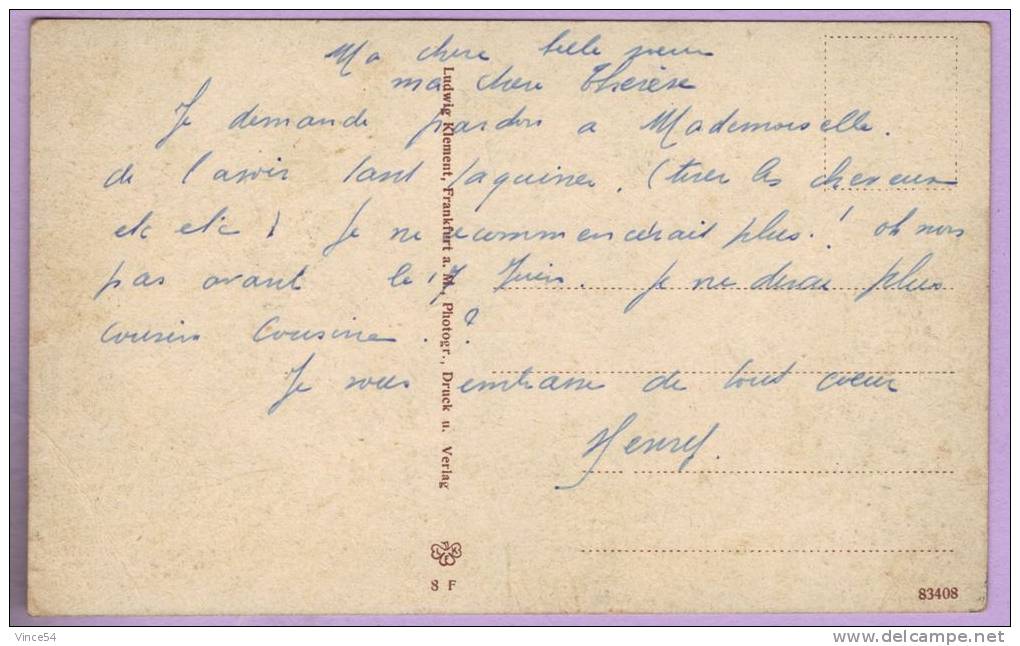 Ma chere belle soeur
ma chere Therèse
Je demande pardon a Mademoiselle.
de l'avoir tant taquiner. (tirer les cheveux
etc etc ) Je ne recommencerait plus! oh non
pas avant le 17 Juin. Je ne dirai plus
cousin Cousine.?
Je vous embrasse de tout coeur
Henry.
Ludwig Klement, Frankfurt a. M., Photogr., Druck u. Verlag
8 F
83408
Vince54
www.delcampe.net